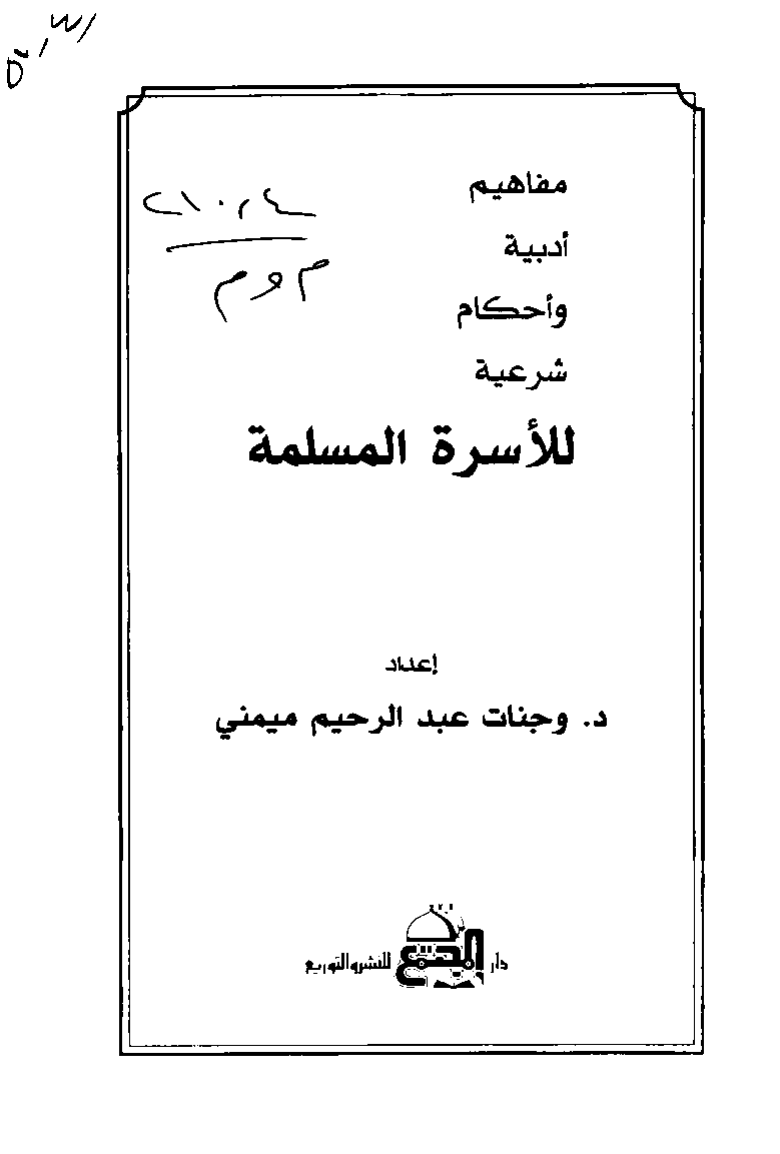 مفاهيم
أدبية
وأحكام
شرعية
للأسرة المسلمة
٢١٠,٤
م و م
إعداد
د. وجنات عبد الرحيم ميمني
دار المجتمع للنشر والتوزيع